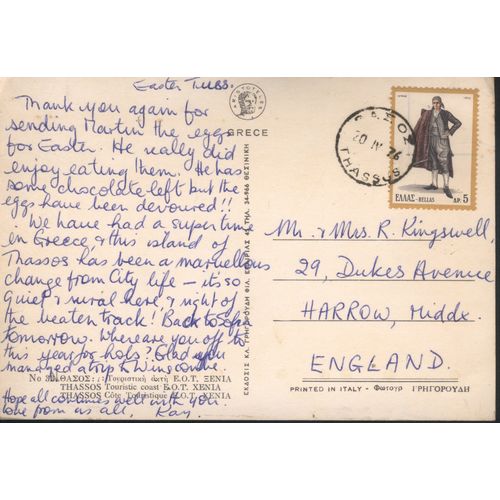 Easter Tues.
Thank you again for
sending Martin the eggs
for Easter. He really did
enjoy eating them. He has
some chocolate left but the
eggs have been devoured!!
We have had a super time
in Greece, & this island of
Thassos has been a marvellous
change from City life — it's so
quiet & rural here, & right off
the beaten track! Back to
tomorrow. Where are you off to
this year for hols? Glad you
managed a trip to Winscombe.
Hope all continues well with you.
Love from us all, Ray.
ΘΑΣΟΣ: Τουριστική ἀκτή Ε.Ο.Τ. ΞΕΝΙΑ
THASSOS Touristic coast E.O.T. XENIA
THASSOS Côte Touristique E.O.T. XENIA
ARISTOTELES
GREECE
ΘΑΣΟΣ
20 IV 76
THASSOS
ΕΛΛΑΣ-HELLAS ΔΡ. 5
Mr. & Mrs. R. Kingswell,
29, Dukes Avenue
HARROW, Middx.
ENGLAND.
PRINTED IN ITALY - Φωτογρ ΓΡΗΓΟΡΟΥΔΗ